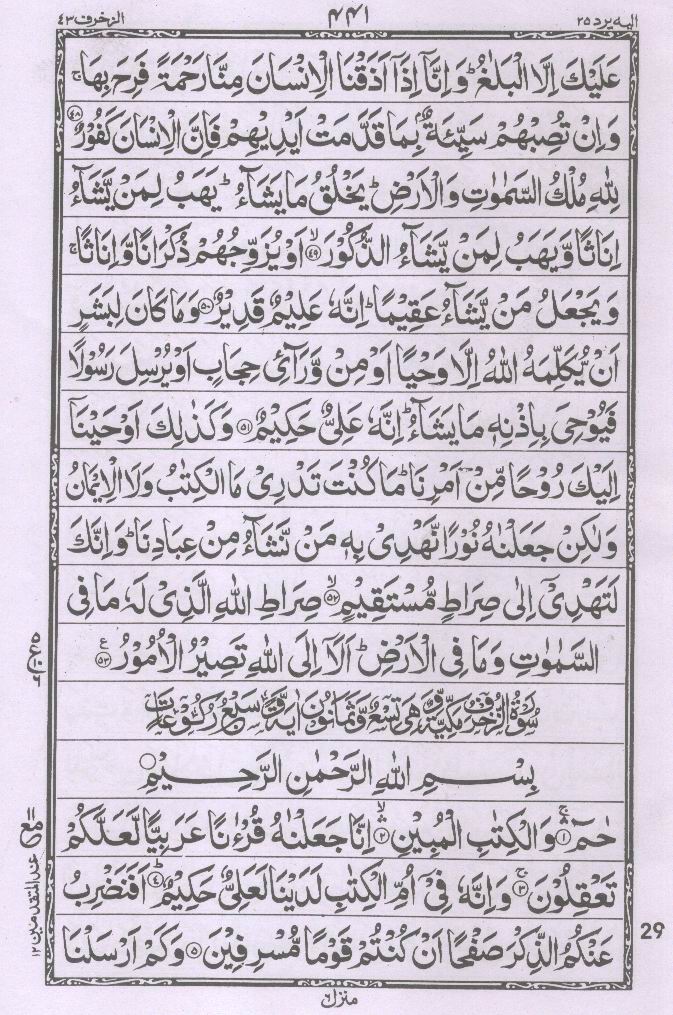 الیه یرد ۲۵
۴۴۱
الزخرف ۴۳
عَلَیْكَ اِلَّا الْبَلٰغُ ؕ وَ اِنَّاۤ اِذَاۤ اَذَقْنَا الْاِنْسَانَ مِنَّا رَحْمَةً فَرِحَ بِهَا ۚ
وَ اِنْ تُصِبْهُمْ سَیِّئَةٌۢ بِمَا قَدَّمَتْ اَیْدِیْهِمْ فَاِنَّ الْاِنْسَانَ كَفُوْرٌ ۴۸
لِلّٰهِ مُلْكُ السَّمٰوٰتِ وَ الْاَرْضِ ؕ یَخْلُقُ مَا یَشَآءُ ؕ یَهَبُ لِمَنْ یَّشَآءُ
اِنَاثًا وَّ یَهَبُ لِمَنْ یَّشَآءُ الذُّكُوْرَ ۙ۴۹ اَوْ یُزَوِّجُهُمْ ذُكْرَانًا وَّ اِنَاثًا ۚ
وَ یَجْعَلُ مَنْ یَّشَآءُ عَقِیْمًا ؕ اِنَّهٗ عَلِیْمٌ قَدِیْرٌ ۵۰ وَ مَا كَانَ لِبَشَرٍ
اَنْ یُّكَلِّمَهُ اللّٰهُ اِلَّا وَحْیًا اَوْ مِنْ وَّرَآئِ حِجَابٍ اَوْ یُرْسِلَ رَسُوْلًا
فَیُوْحِیَ بِاِذْنِهٖ مَا یَشَآءُ ؕ اِنَّهٗ عَلِیٌّ حَكِیْمٌ ۵۱ وَ كَذٰلِكَ اَوْحَیْنَاۤ
اِلَیْكَ رُوْحًا مِّنْ اَمْرِنَا ؕ مَا كُنْتَ تَدْرِیْ مَا الْكِتٰبُ وَ لَا الْاِیْمَانُ
وَ لٰكِنْ جَعَلْنٰهُ نُوْرًا نَّهْدِیْ بِهٖ مَنْ نَّشَآءُ مِنْ عِبَادِنَا ؕ وَ اِنَّكَ
لَتَهْدِیْۤ اِلٰی صِرَاطٍ مُّسْتَقِیْمٍ ۙ۵۲ صِرَاطِ اللّٰهِ الَّذِیْ لَهٗ مَا فِی
السَّمٰوٰتِ وَ مَا فِی الْاَرْضِ ؕ اَلَاۤ اِلَی اللّٰهِ تَصِیْرُ الْاُمُوْرُ ۵۳ ع
سُوْرَةُ الزُّخْرُفِ مَكِّیَّةٌ وَّ هِیَ تِسْعٌ وَّ ثَمَانُوْنَ اٰیَةً وَّ سَبْعُ رُكُوْعَاتٍ
بِسْمِ اللّٰهِ الرَّحْمٰنِ الرَّحِیْمِ
حٰمٓ ۚ۱ وَ الْكِتٰبِ الْمُبِیْنِ ۙ۲ اِنَّا جَعَلْنٰهُ قُرْءٰنًا عَرَبِیًّا لَّعَلَّكُمْ
تَعْقِلُوْنَ ۚ۳ وَ اِنَّهٗ فِیْۤ اُمِّ الْكِتٰبِ لَدَیْنَا لَعَلِیٌّ حَكِیْمٌ ؕ۴ اَفَنَضْرِبُ
عَنْكُمُ الذِّكْرَ صَفْحًا اَنْ كُنْتُمْ قَوْمًا مُّسْرِفِیْنَ ۵ وَ كَمْ اَرْسَلْنَا
عند المتقدمین ۱۲
29
منزل ۶